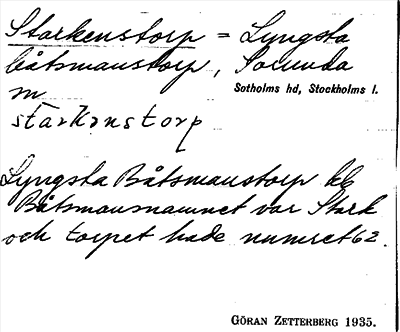 Starkenstorp = Lyngsta
båtsmanstorp, Sorunda
m Sotholms hd, Stockholms l.
starkənstorp
Lyngsta Båtsmanstorp
Båtsmansnamnet var Stark
och torpet hade numret 62.
GÖRAN ZETTERBERG 1935.